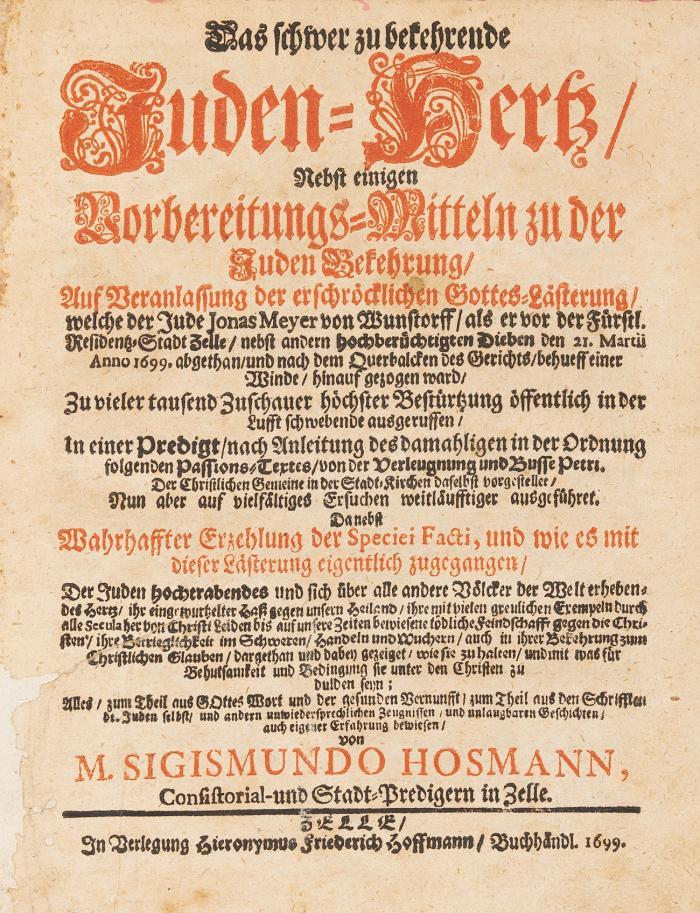 Das schwer zu bekehrende
Juden-Hertz/
Nebst einigen
Vorbereitungs-Mitteln zu der
Juden Bekehrung/
Auf Veranlassung der erschröcklichen Gottes-Lästerung/
welche der Jude Jonas Meyer von Wunstorff/ als er vor der Fürstl.
Residentz-Stadt Zelle/ nebst andern hochberüchtigten Dieben den 21. Martii
Anno 1699. abgethan/ und nach dem Querbalcken des Gerichts/ behueff einer
Winde/ hinauf gezogen ward/
Zu vieler tausend Zuschauer höchster Bestürtzung öffentlich in der
Lufft schwebende ausgeruffen/
In einer Predigt/ nach Anleitung des damahligen in der Ordnung
folgenden Passions/Textes/ von der Verleugnung und Busse Petri.
Der Christlichen Gemeine in der Stadt-Kirchen daselbst vorgestellet/
Nun aber auf vielfältiges Ersuchen weitläufftiger ausgeführet.
Danebst
Wahrhaffter Erzehlung der Speciei Facti, und wie es mit
dieser Lästerung eigentlich zugegangen/
Der Juden hochtrabendes und sich über alle andere Völcker der Welt erheben-
des Hertz/ ihr eingewurtzelter Haß gegen unsern Heiland/ ihre mit vielen greulichen Exempeln durch
alle Secula her von Christi Leiden bis auf unsere Zeiten bewiesene tödliche Feindschafft gegen die Chri-
sten/ ihre Betrieglichkeit im Schweren/ Handeln und Wuchern/ auch in ihrer Bekehrung zum
Christlichen Glauben/ dargethan und dabey gezeiget/ wie sie zu halten/ und mit was für
Behutsamkeit und Bedingung sie unter den Christen zu
dulden seyn;
Alles/ zum Theil aus GOttes Wort und der gesunden Vernunfft/ zum Theil aus den Schrifften
der Juden selbst/ und andern unwiedersprechlichen Zeugnissen/ und unlaugbaren Geschichten/
auch eigener Erfahrung bewiesen/
von
M. SIGISMUNDO HOSMANN,
Consistorial-und Stadt-Predigern in Zelle.
ZELLE/
In Verlegung Hieronymus Friederich Hoffmann/ Buchhändl. 1699.